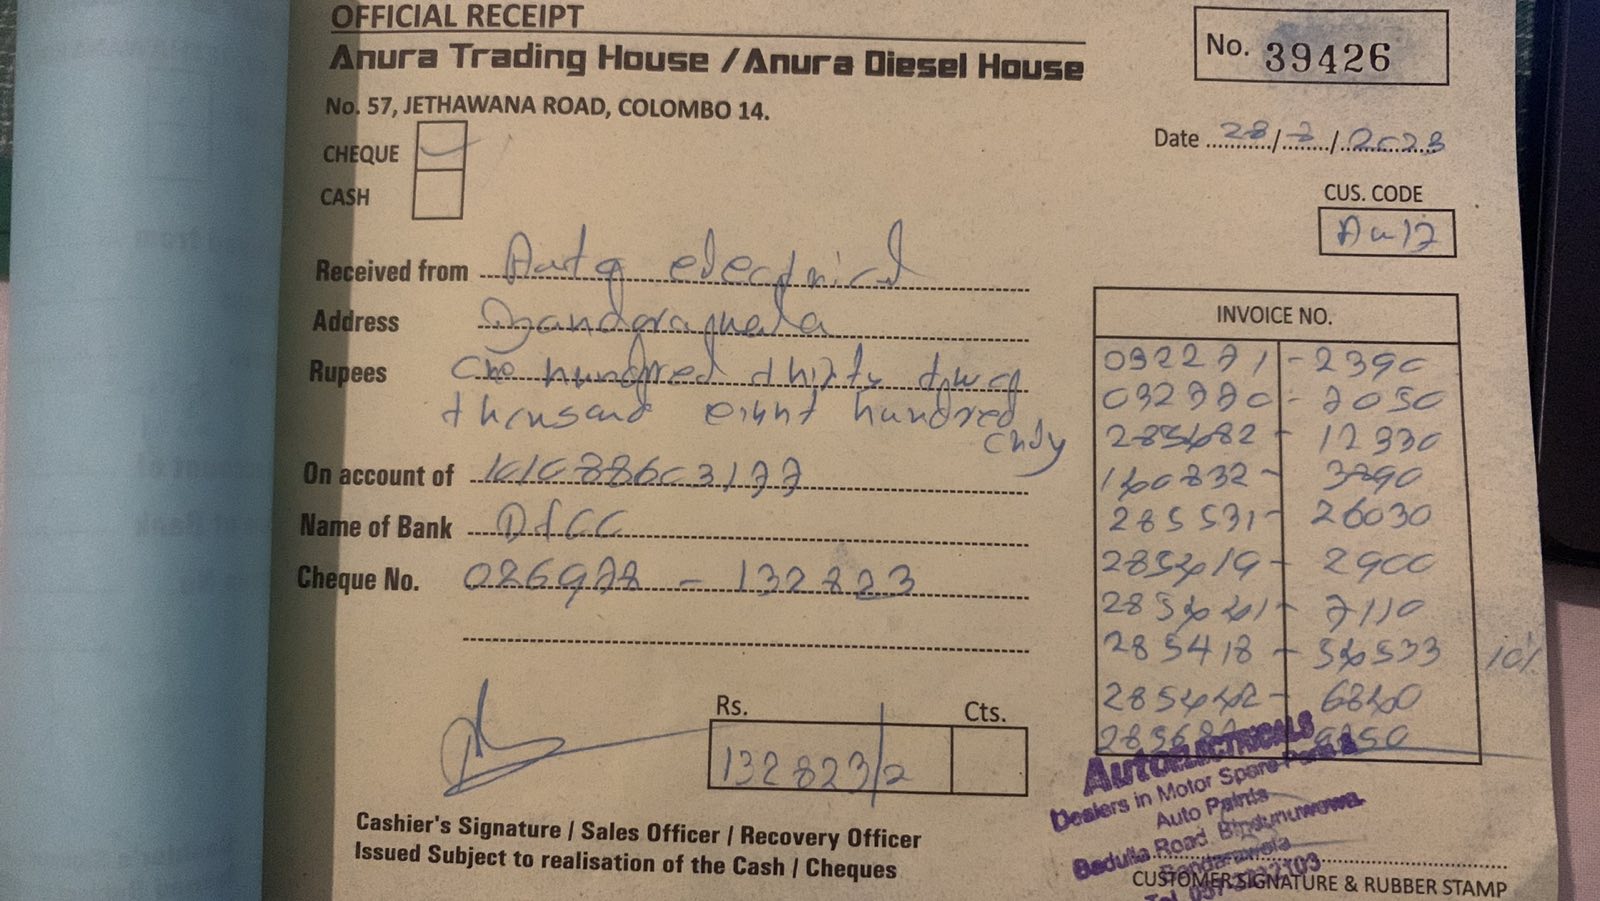 OFFICIAL RECEIPT
Anura Trading House / Anura Diesel House
No. 39426
No. 57, JETHAWANA ROAD, COLOMBO 14.
Date 28/7/2023
CHEQUE
CASH
CUS. CODE
Au 17
Received from Auto electrical
Address Bandarawela
Rupees One hundred thirty two
thousand eight hundred
only
On account of
Name of Bank DFCC
Cheque No. 026978 - 132823
INVOICE NO.
032271 - 2390
032770 - 7050
12930
3890
285531 - 26030
285419 - 2900
285441 - 7110
285418 - 54533 10%
285442 - 6840
9850
Rs. Cts.
132823/2
Cashier's Signature / Sales Officer / Recovery Officer
Issued Subject to realisation of the Cash / Cheques
AUTOELECTRICALS
Dealers in Motor Spare Parts &
Auto Paints
Badulla Road, Bindunuwewa
Bandarawela
CUSTOMER SIGNATURE & RUBBER STAMP